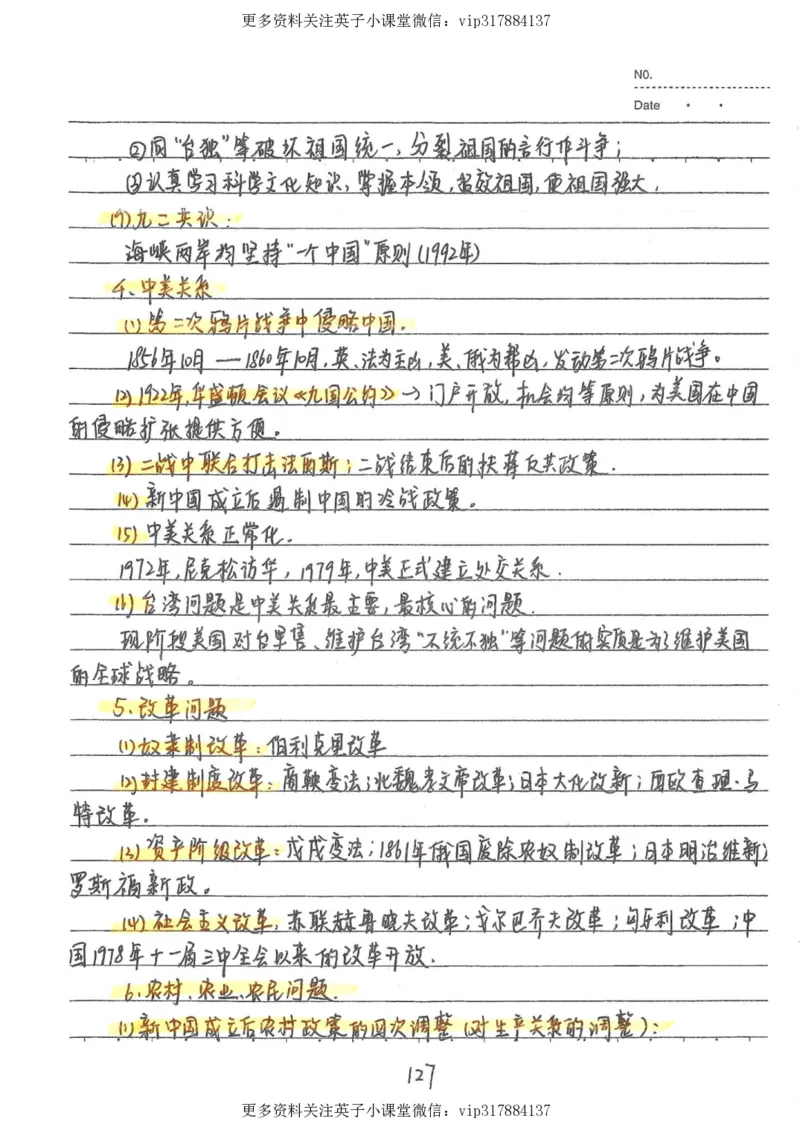 更多资料关注英子小课堂微信：vip317884137
NO.
Date
②同“台独”等破坏祖国统一、分裂祖国的言行作斗争；
③认真学习科学文化知识，掌握本领，报效祖国，使祖国强大.
(7)九二共识：
海峡两岸均坚持“一个中国”原则(1992年)
4、中美关系
(1)第二次鸦片战争中侵略中国.
1856年10月——1860年10月，英、法为主凶，美、俄为帮凶，发动第二次鸦片战争。
(2)1922年，华盛顿会议《九国公约》→门户开放，机会均等原则，为美国在中国
的侵略扩张提供方便。
(3)二战中联合打击法西斯；二战结束后的扶蒋反共政策.
(4)新中国成立后遏制中国的冷战政策。
(5)中美关系正常化.
1972年，尼克松访华，1979年，中美正式建立外交关系.
(6)台湾问题是中美关系最主要，最核心的问题.
现阶段美国对台军售、维护台湾“不统不独”等问题的实质是为了维护美国
的全球战略。
5、改革问题
(1)奴隶制改革：伯利克里改革
(2)封建制度改革：商鞅变法；北魏孝文帝改革；日本大化改新；西欧查理·马
特改革.
(3)资产阶级改革：戊戌变法；1861年俄国废除农奴制改革；日本明治维新；
罗斯福新政。
(4)社会主义改革，苏联赫鲁晓夫改革；戈尔巴乔夫改革；匈牙利改革；中
国1978年十一届三中全会以来的改革开放.
6、农村、农业、农民问题.
(1)新中国成立后农村政策的四次调整(对生产关系的调整)：
127
更多资料关注英子小课堂微信：vip317884137